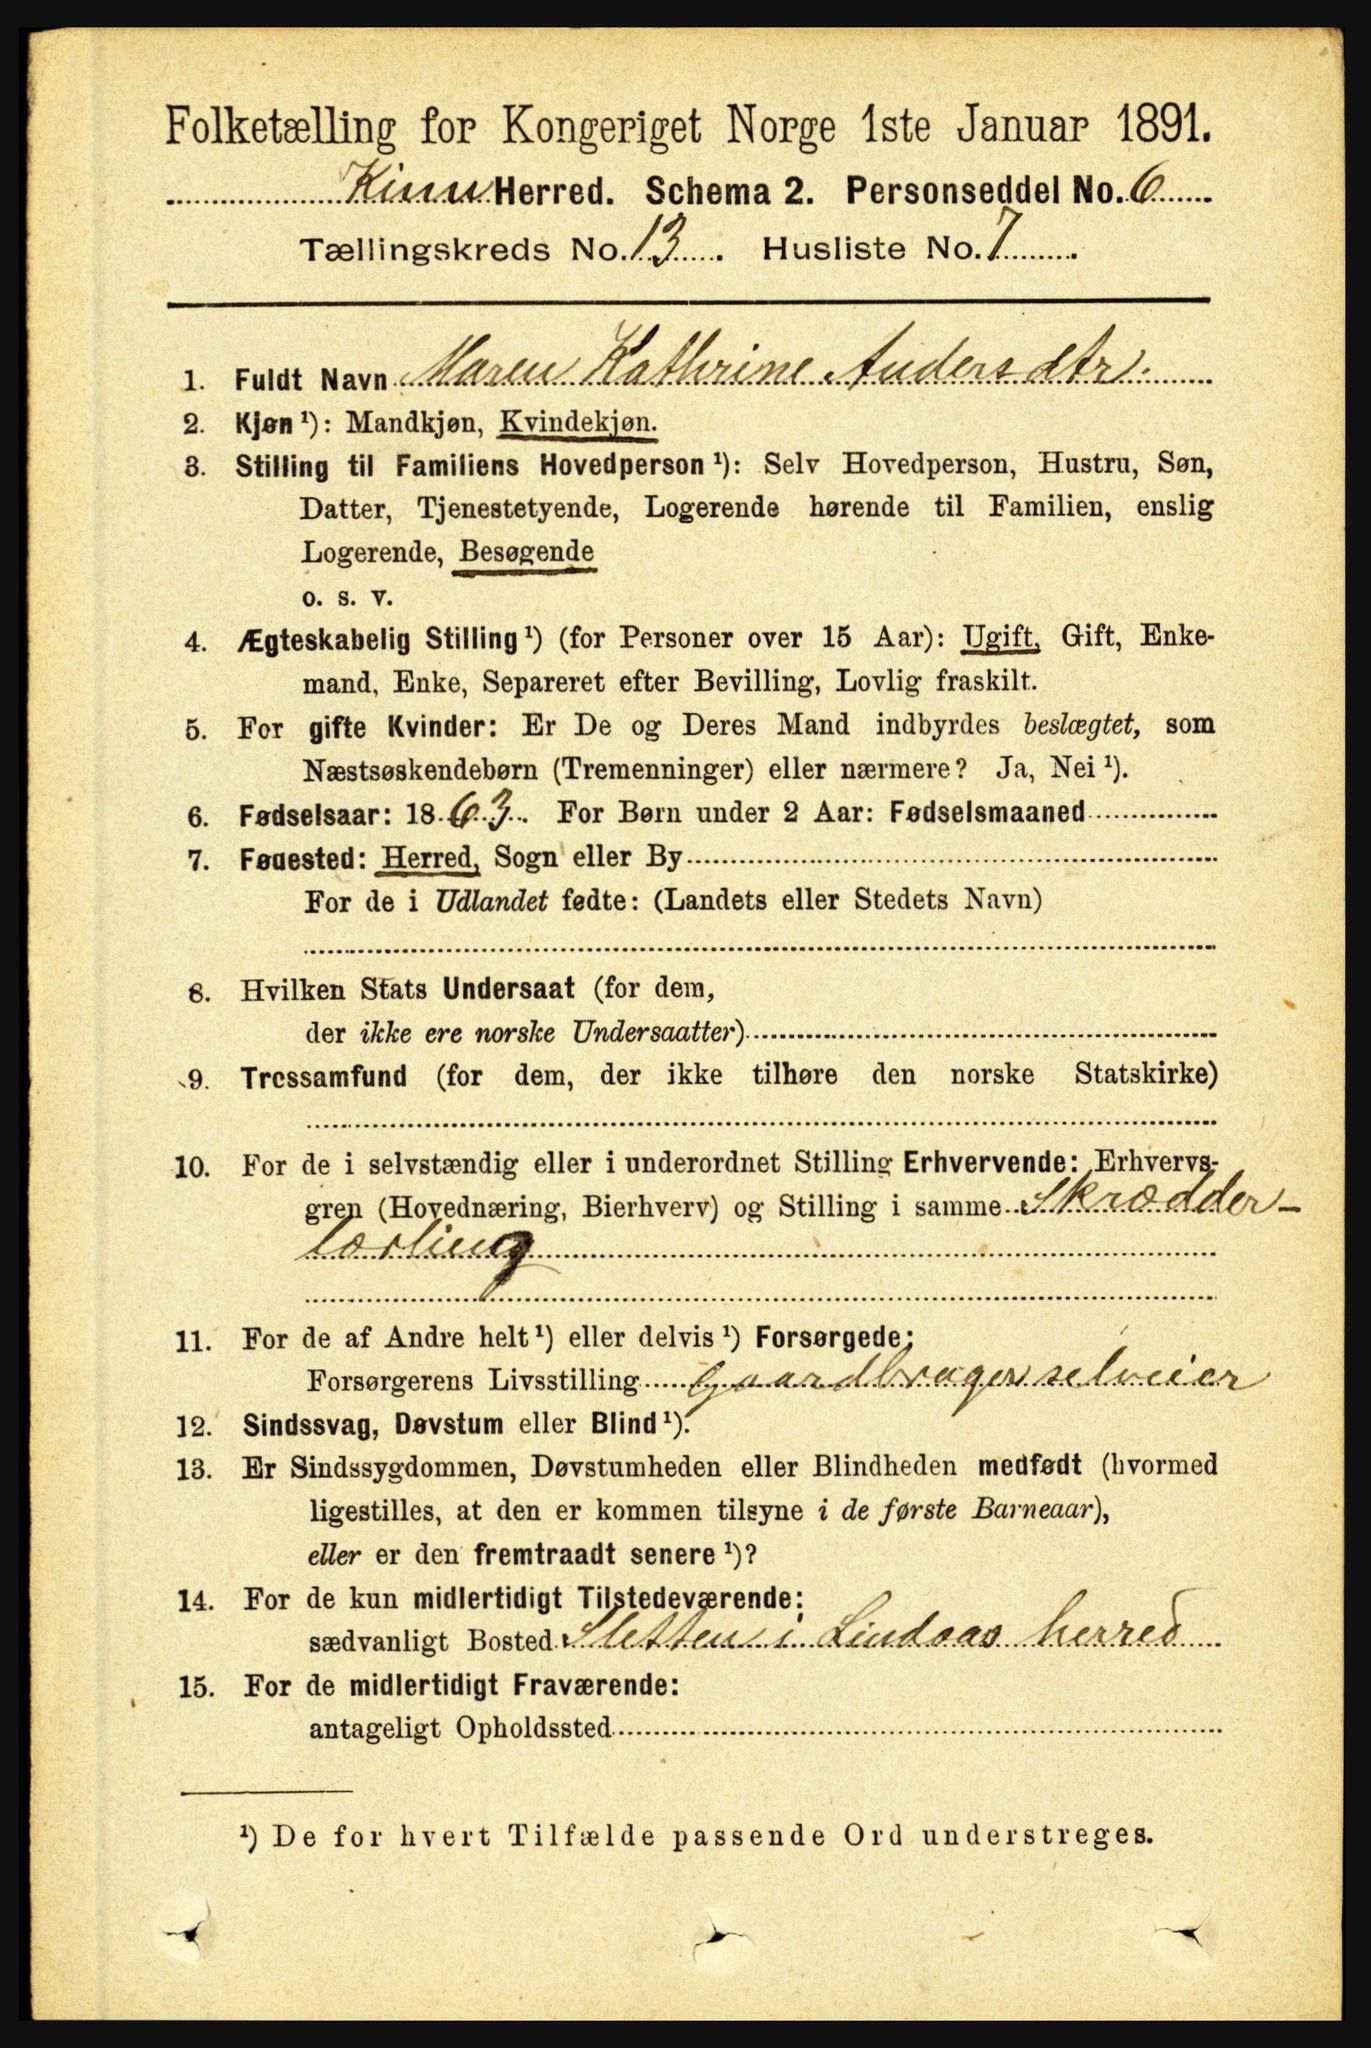 Folketælling for Kongeriget Norge 1ste Januar 1891.
Kinn Herred. Schema 2. Personseddel No. 6
Tællingskreds No. 13. Husliste No. 7
1. Fuldt Navn Maren Kathrine Andersdtr.
2. Kjøn ¹): Mandkjøn, Kvindekjøn.
3. Stilling til Familiens Hovedperson ¹): Selv Hovedperson, Hustru, Søn,
Datter, Tjenestetyende, Logerende hørende til Familien, enslig
Logerende, Besøgende
o. s. v.
4. Ægteskabelig Stilling ¹) (for Personer over 15 Aar): Ugift, Gift, Enke-
mand, Enke, Separeret efter Bevilling, Lovlig fraskilt.
5. For gifte Kvinder: Er De og Deres Mand indbyrdes beslægtet, som
Næstsøskendebørn (Tremenninger) eller nærmere? Ja, Nei ¹).
6. Fødselsaar: 1863. For Børn under 2 Aar: Fødselsmaaned
7. Fødested: Herred, Sogn eller By
For de i Udlandet fødte: (Landets eller Stedets Navn)
8. Hvilken Stats Undersaat (for dem,
der ikke ere norske Undersaatter)
9. Trossamfund (for dem, der ikke tilhøre den norske Statskirke)
10. For de i selvstændig eller i underordnet Stilling Erhvervende: Erhvervs-
gren (Hovednæring, Bierhverv) og Stilling i samme Skrædder-
lærling
11. For de af Andre helt ¹) eller delvis ¹) Forsørgede:
Forsørgerens Livsstilling Gaardbruger selveier
12. Sindssvag, Døvstum eller Blind ¹).
13. Er Sindssygdommen, Døvstumheden eller Blindheden medfødt (hvormed
ligestilles, at den er kommen tilsyne i de første Barneaar),
eller er den fremtraadt senere ¹)?
14. For de kun midlertidigt Tilstedeværende:
sædvanligt Bosted Sletten i Lindaas herred
15. For de midlertidigt Fraværende:
antageligt Opholdssted
¹) De for hvert Tilfælde passende Ord understreges.